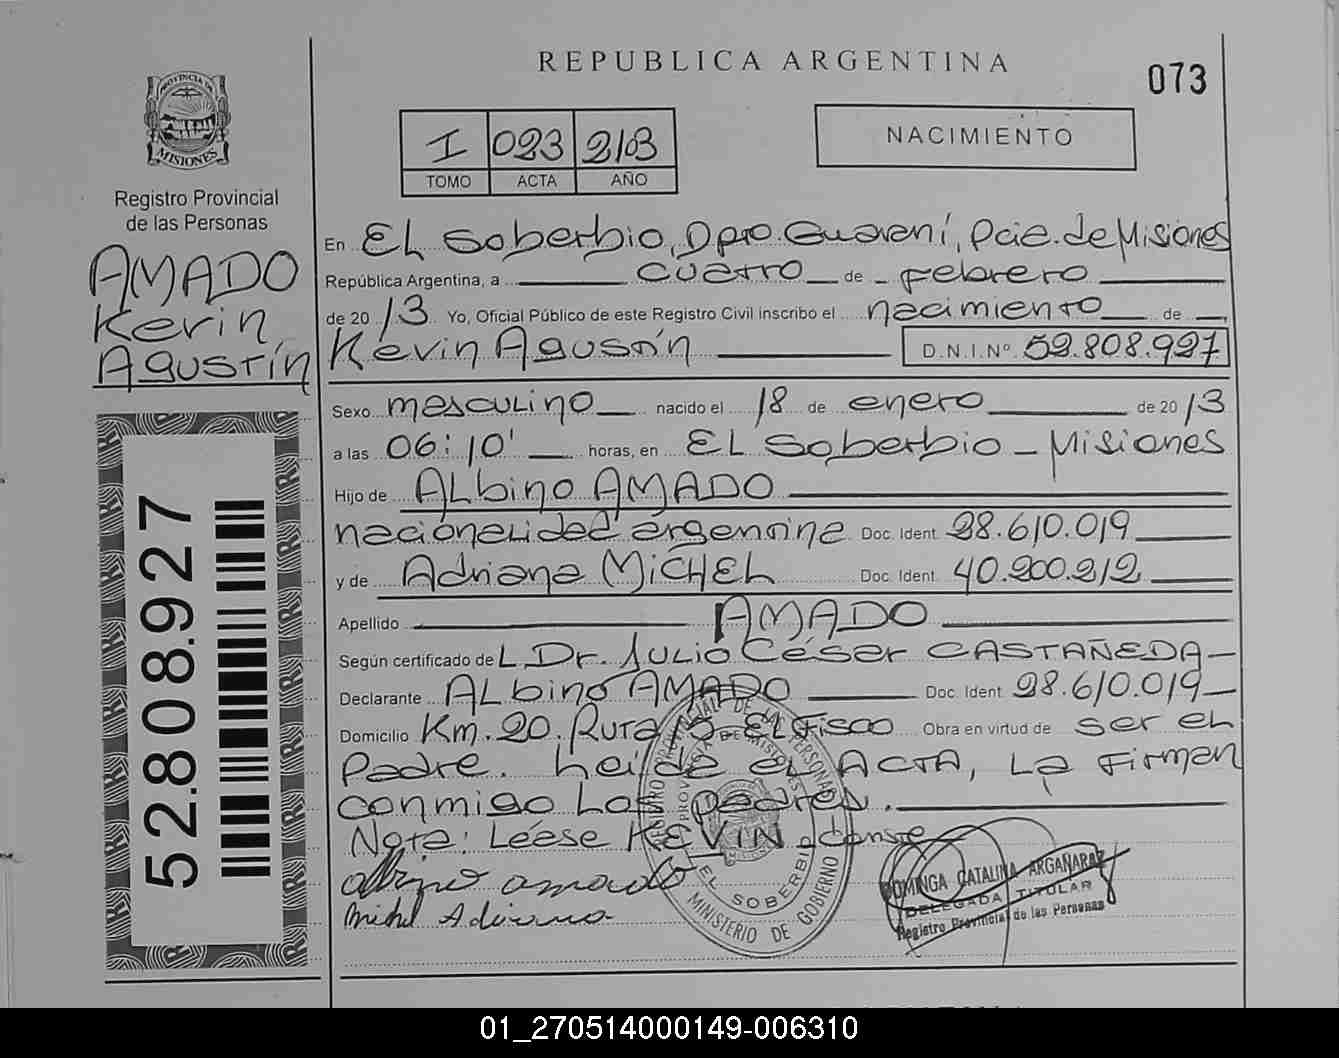 REPUBLICA ARGENTINA
073
PROVINCIA DE
MISIONES
Registro Provincial
de las Personas
AMADO
Kevin
Agustín
52.808.927
I 023 2013
TOMO ACTA AÑO
NACIMIENTO
En EL Soberbio, Dpto. Guaraní, Pcia. de Misiones
República Argentina, a cuatro de febrero
de 2013 Yo, Oficial Público de este Registro Civil inscribo el nacimiento de
Kevin Agustín D.N.I.Nº 52.808.927
Sexo masculino nacido el 18 de enero de 2013
a las 06:10' horas, en EL Soberbio - Misiones
Hijo de ALbino AMADO
nacionalidad argentina Doc. Ident. 28.610.019
y de Adriana MICHEL Doc. Ident. 40.200.212
Apellido AMADO
Según certificado deL Dr. Julio César CASTAÑEDA
Declarante ALbino AMADO Doc. Ident. 28.610.019
Domicilio Km. 20. Ruta El Fisco Obra en virtud de ser el
Padre. Leída el ACTA, La firman
conmigo Los padres.
Nota: Léase KEVIN. Conste
Albino amado
Michel Adriana
REGISTRO PROVINCIAL DE LAS PERSONAS
PROVINCIA DE MISIONES
EL SOBERBIO
MINISTERIO DE GOBIERNO
DOMINGA CATALINA ARGAÑARAZ
DELEGADA TITULAR
Registro Provincial de las Personas
01_270514000149-006310